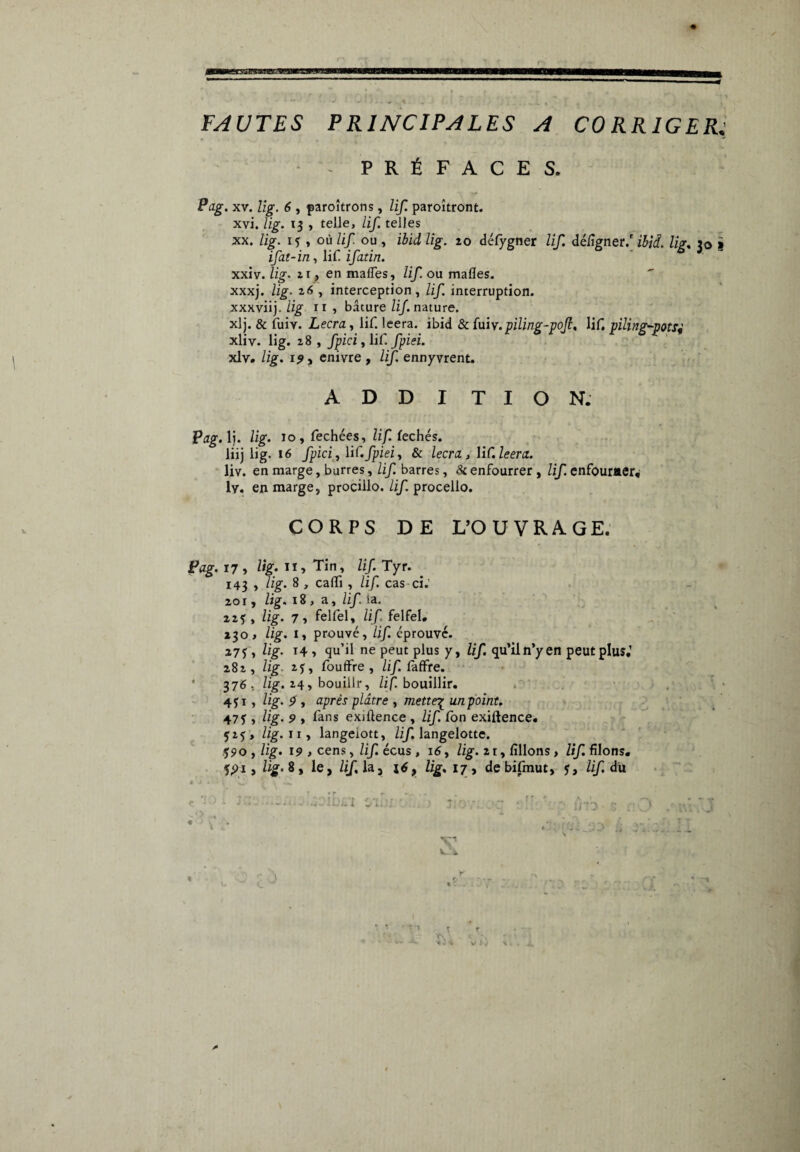 FAUTES PRINCIPALES A CORRIGER.
PRÉFACES.
Pag. xv. lig. 6, paroîtrons, liſ. paroîtront.
xvi. lig. 13, telle, liſ. telles
xx. lig. 15, où liſ. ou, ibid lig. 20 déſygner liſ. déſigner. ibid. lig. 30,
iſat-in, liſ. iſatin.
xxiv. lig. 21, en maſſes, liſ. ou maſſes.
xxxj. lig. 26, interception, liſ. interruption.
xxxviij. lig 11, bâture liſ. nature.
xlj. & ſuiv. Lecra, liſ. leera. ibid & ſuiv. piling-poſt, liſ. piling-pots,
xliv. lig. 28, ſpici, liſ. ſpiei.
xlv. lig. 19, enivre, liſ. ennyvrent.
ADDITION.
Pag. lj. lig. 10, ſechées, liſ. ſechés.
liij lig. 16 ſpici, liſ. ſpiei, & lecra, liſ. leera.
liv. en marge, burres, liſ. barres, & enfourrer, liſ. enfourner,
lv. en marge, procillo. liſ. procello.
CORPS DE L'OUVRAGE.
Pag. 17, lig. 11, Tin, liſ. Tyr.
143, lig. 8, caſſi, liſ. cas ci.
201, lig. 18, a, liſ. la.
225, lig. 7, felſel, liſ. felfel.
230, lig. 1, prouvé, liſ. éprouvé.
275, lig. 14, qu'il ne peut plus y, liſ. qu'il n'y en peut plus.
282, lig. 25, ſouffre, liſ. ſaffre.
376, lig. 24, bouillr, liſ. bouillir.
451, lig. 9, après plâtre, mettez un point.
475, lig. 9, ſans exiſtence, liſ. ſon exiſtence.
525, lig. 11, langelott, liſ. langelotte.
590, lig. 19, cens, liſ. écus, 16, lig. 21, ſillons, liſ. filons.
591, lig. 8, le, liſ. la, 16, lig. 17, de biſmut, 5, liſ. du